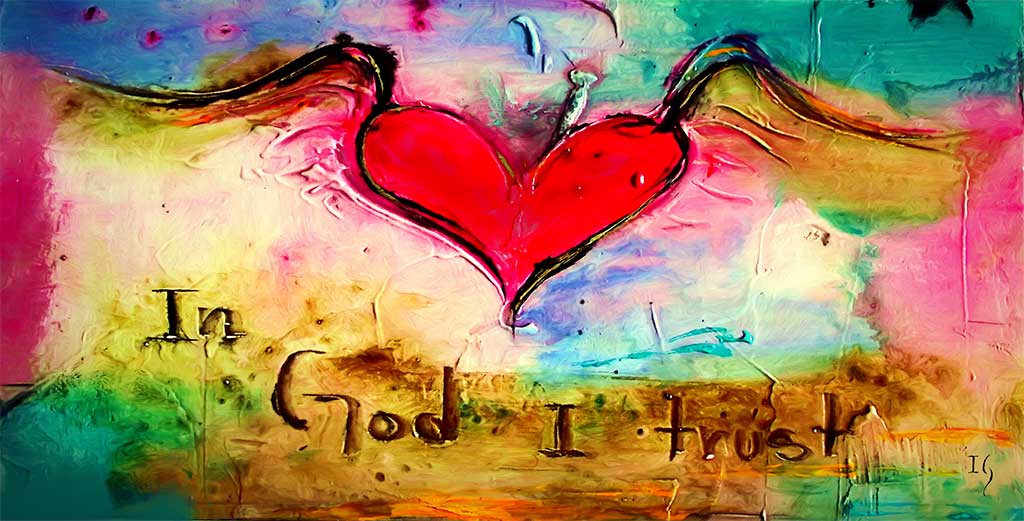 In
God I trust
IG